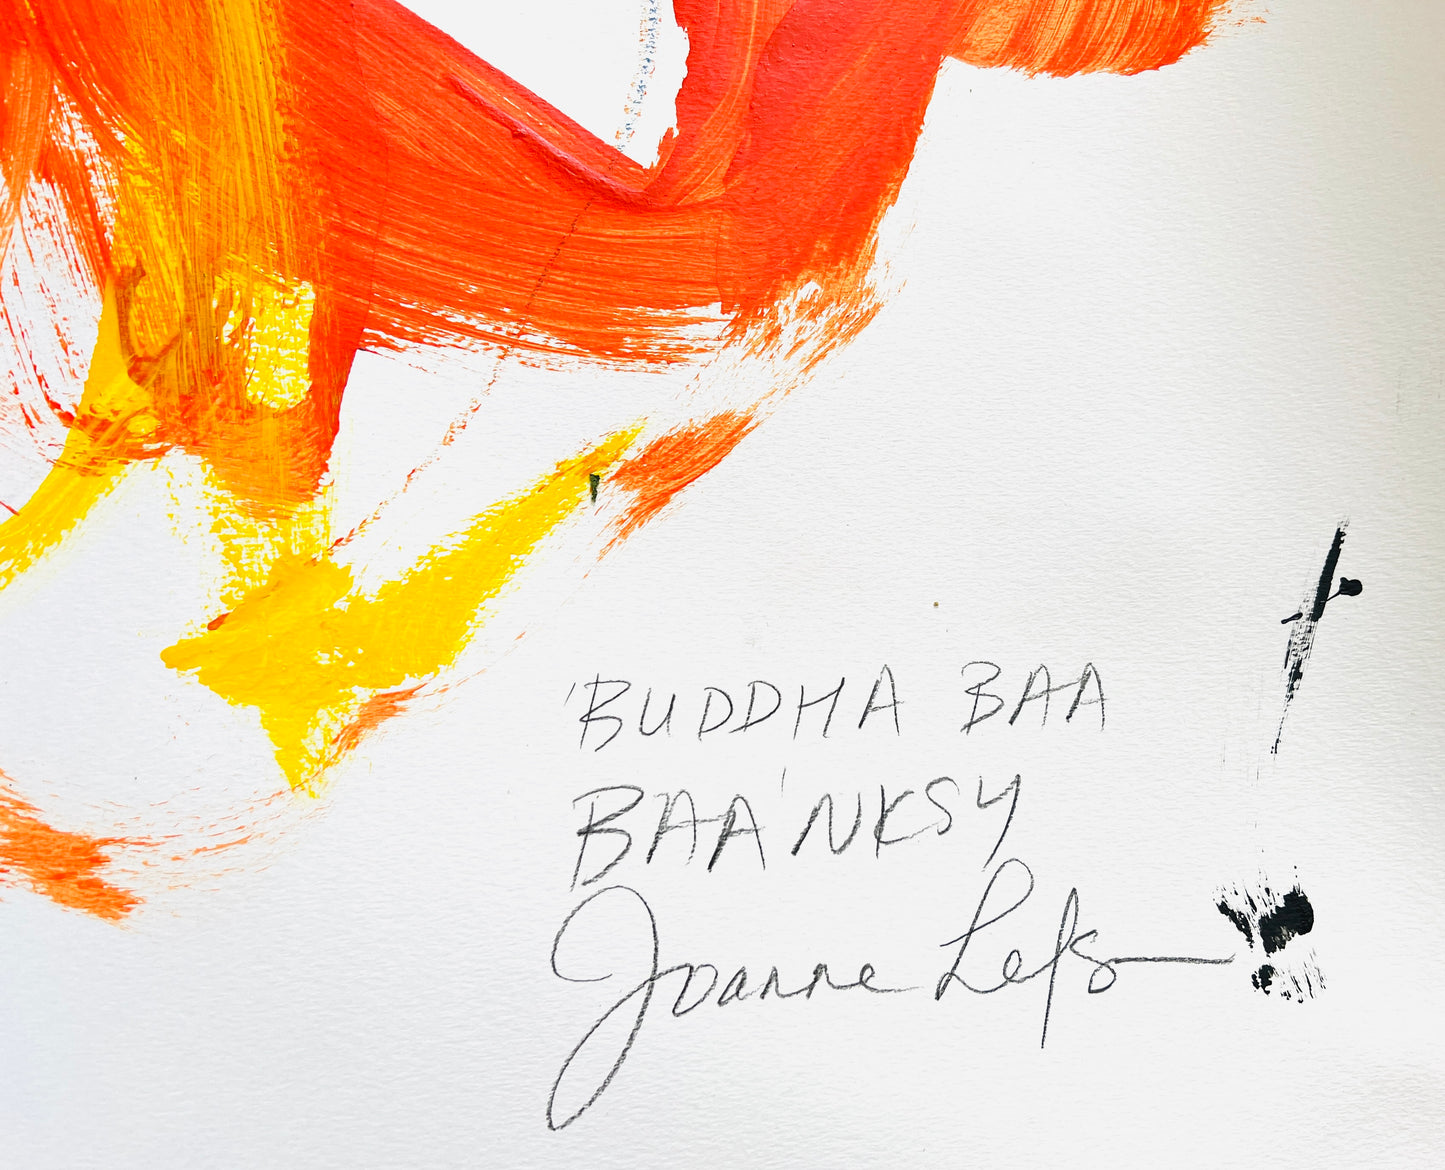 'BUDDHA BAA
BAA'NKSY
Joanne Lefs